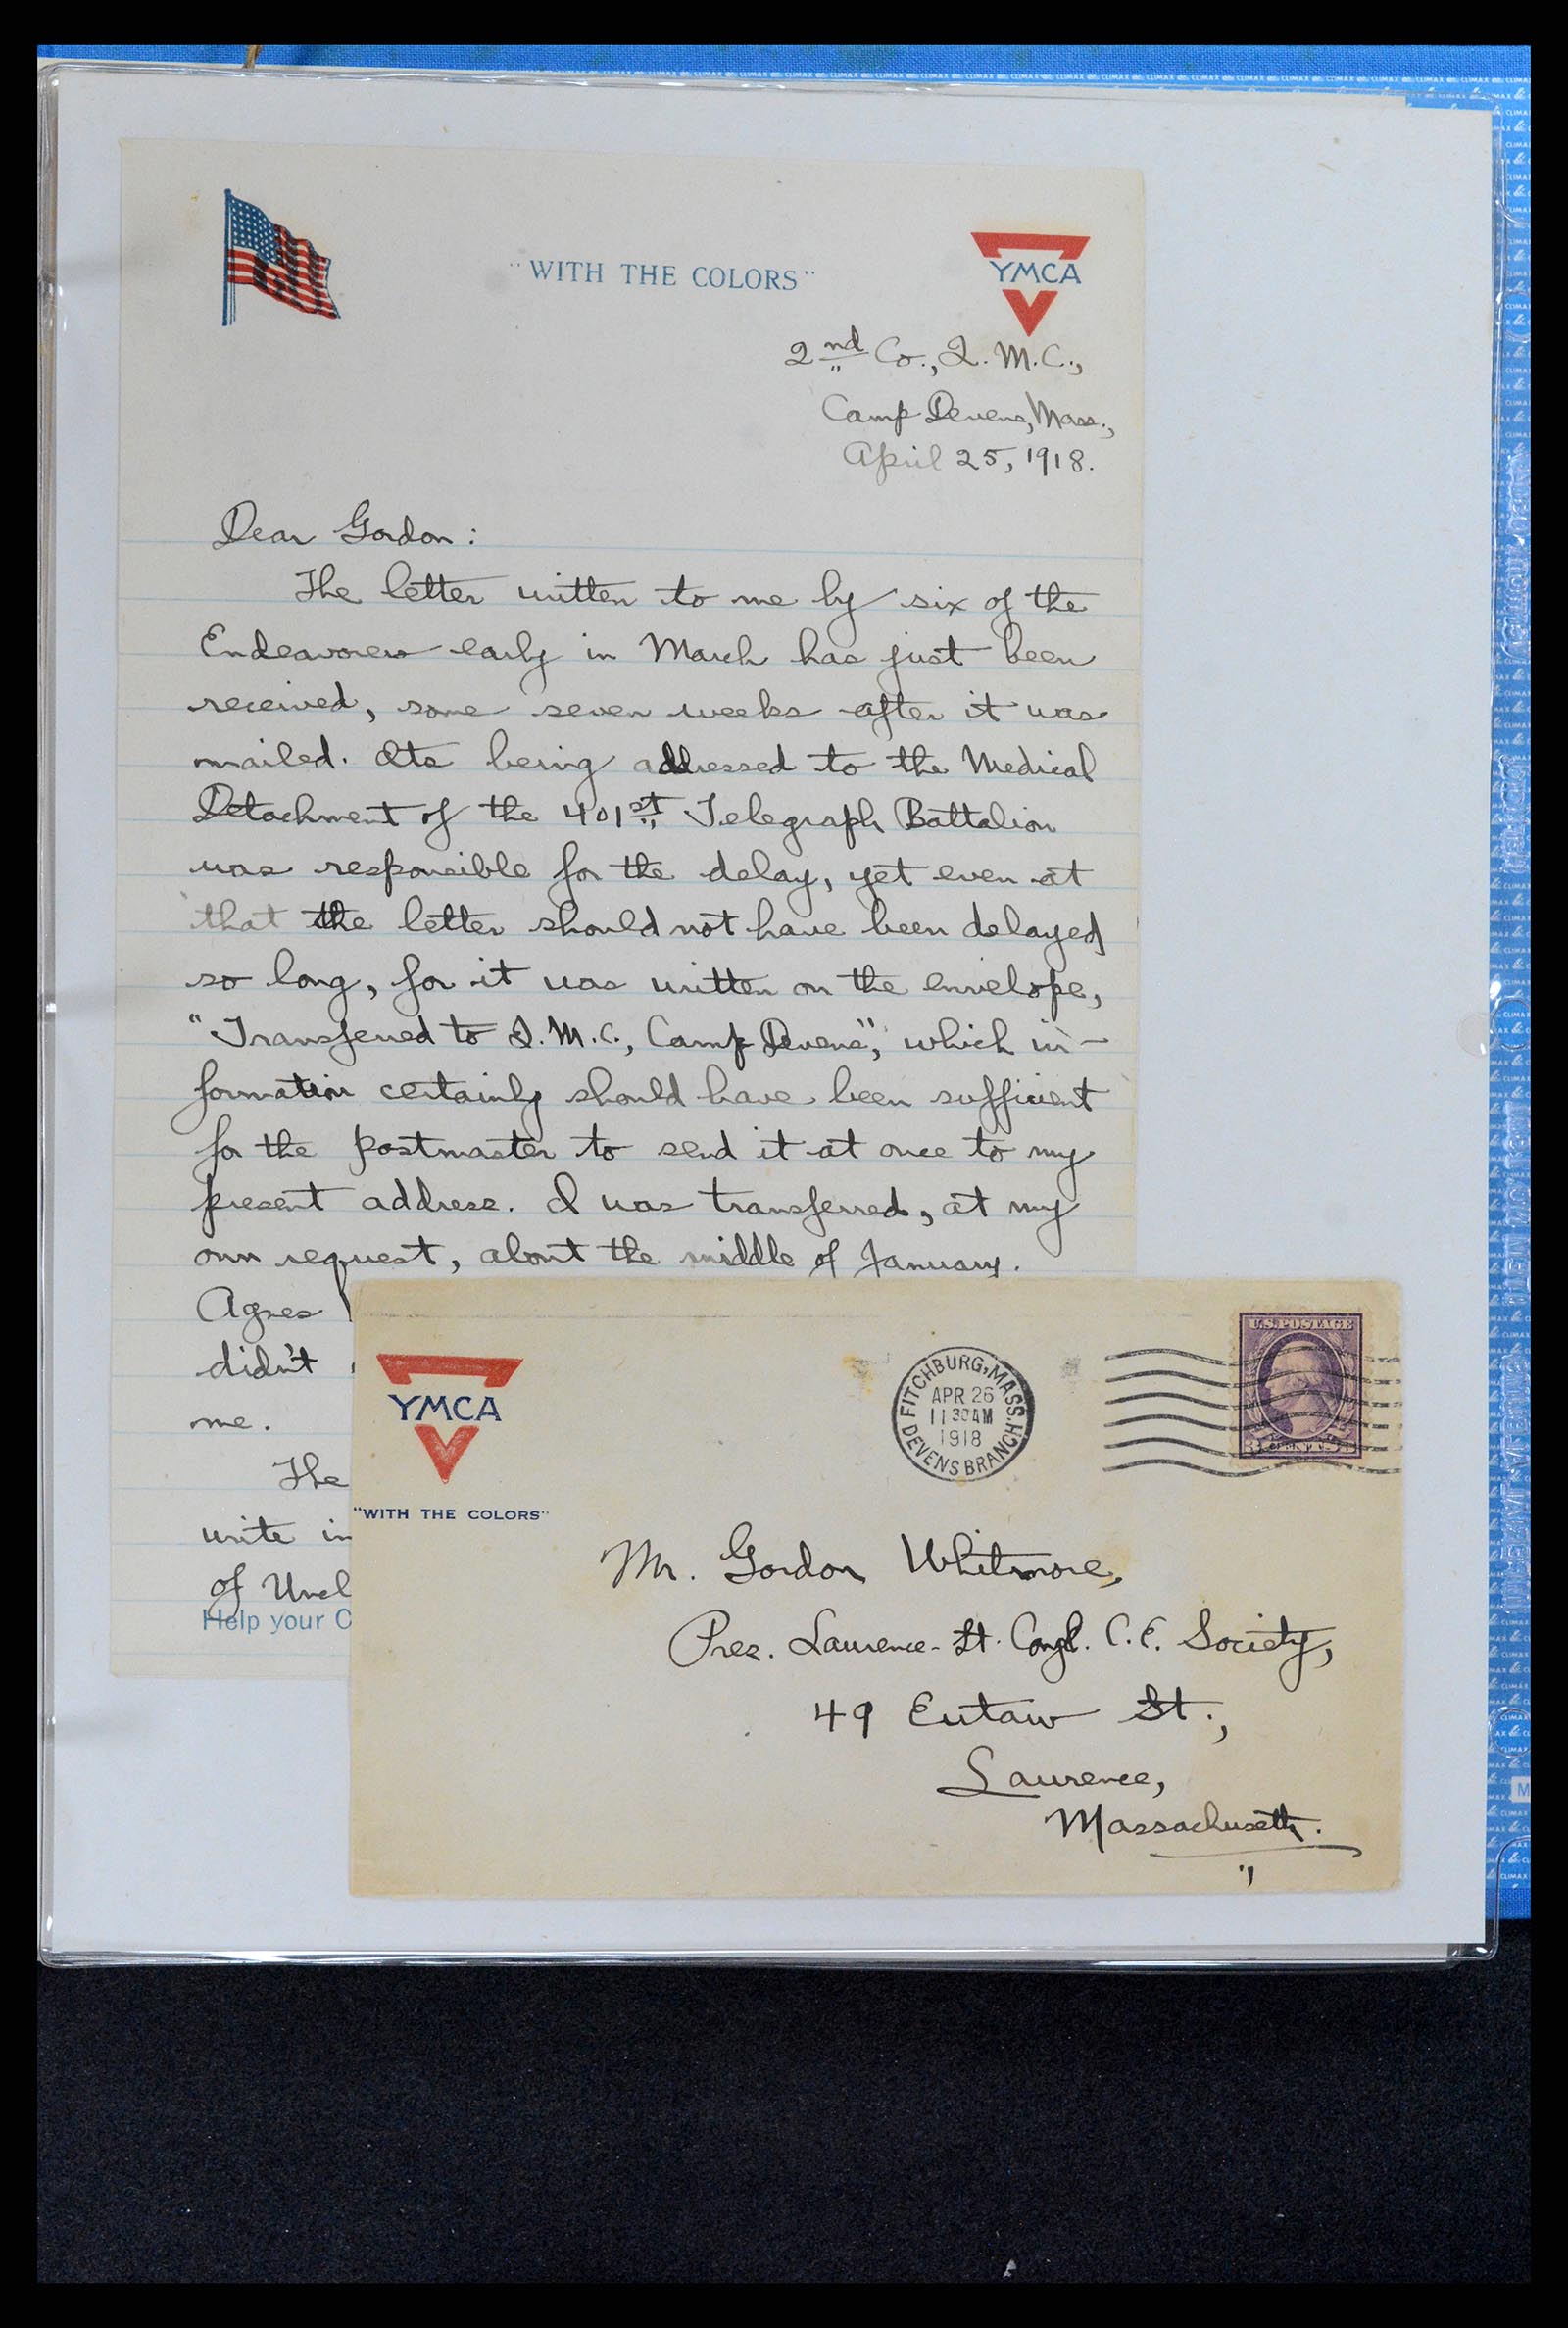 "WITH THE COLORS"
YMCA
2nd Co., Q. M. C.,
Camp Devens, Mass.,
April 25, 1918.
Dear Gordon:
The letter written to me by six of the
Endeavorers early in March has just been
received, some seven weeks after it was
mailed. Its being addressed to the Medical
Detachment of the 401st Telegraph Battalion
was responsible for the delay, yet even at
that the letter should not have been delayed
so long, for it was written on the envelope,
"Transferred to Q. M. C., Camp Devens", which in-
formation certainly should have been sufficient
for the postmaster to send it at once to my
present address. I was transferred, at my
own request, about the middle of January.
Agnes
didn't
me.
The
write in
of Uncl
Help your C
YMCA
"WITH THE COLORS"
FITCHBURG, MASS.
APR 26
11 30 AM
1918
DEVENS BRANCH
U.S. POSTAGE
3 CENTS 3
Mr. Gordon Whitmore,
Pres. Lawrence-St. Congl. C. E. Society,
49 Eutaw St.,
Lawrence,
Massachusetts.